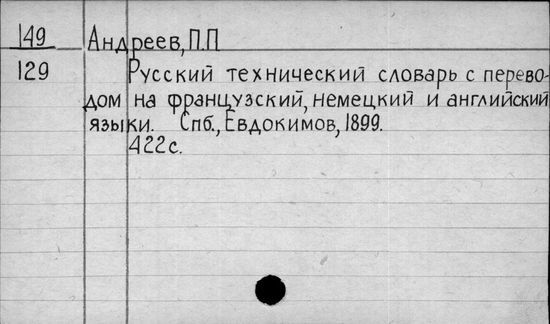 149 Андреев, П.П
129 Русский технический словарь с перево-
дом на французский, немецкий и английский
языки. Спб., Евдокимов, 1899.
422 с.